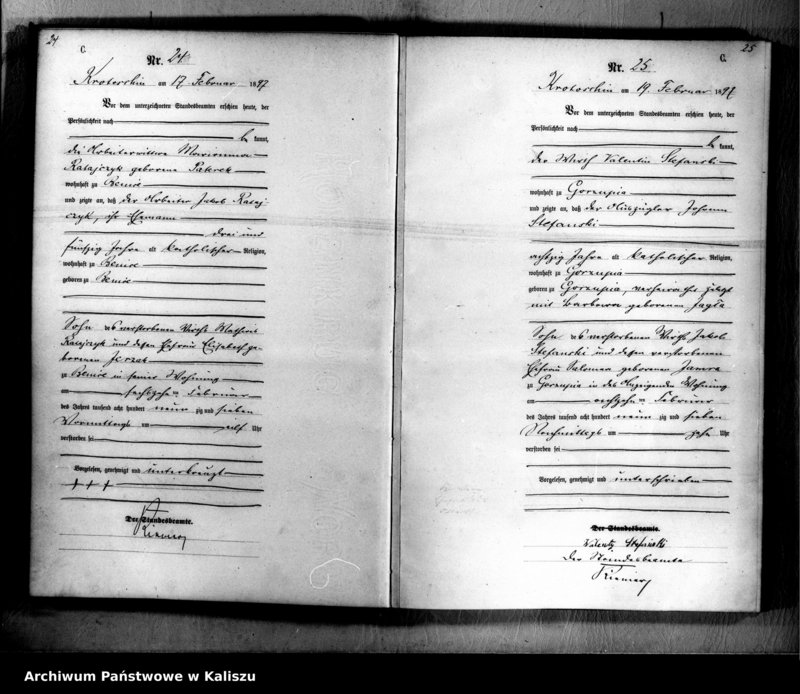 24
C.
Nr. 24
Krotoschin am 17 Februar 1897
Vor dem unterzeichneten Standesbeamten erschien heute, der
Persönlichkeit nach
be kannt,
die Arbeiterwittwe Marianna
Ratajczyk geborene
wohnhaft zu Benice
und zeigte an, daß der Arbeiter Jakob Rataj-
czyk, ihr Ehemann
drei und
fünfzig Jahre alt katholischer Religion,
wohnhaft zu Benice
geboren zu Benice
Sohn des verstorbenen Wirths
Ratajczyk und dessen Ehefrau Elisabeth ge-
borenen
zu Benice in seiner Wohnung
am sechszehn ten Februar
des Jahres tausend acht hundert neun zig und sieben
Vormittags um elf Uhr
verstorben sei
Vorgelesen, genehmigt und unterkreuzt
+++
Der Standesbeamte.
25
C.
Nr. 25
Krotoschin am 19. Februar 1897
Vor dem unterzeichneten Standesbeamten erschien heute, der
Persönlichkeit nach
be kannt,
der Wirth Valentin Stefanski
wohnhaft zu Gorzupia
und zeigte an, daß der Auszügler Johann
Stefanski
achtzig Jahre alt katholischer Religion,
wohnhaft zu Gorzupia
geboren zu Gorzupia, verheirathet
mit Barbara geborenen
Sohn des verstorbenen Wirth Jakob
Stefanski und dessen verstorbenen
Ehefrau Salomea geborenen
zu Gorzupia in des Anzeigenden Wohnung
am achtzehn ten Februar
des Jahres tausend acht hundert neun zig und sieben
Nachmittags um zehn Uhr
verstorben sei
Vorgelesen, genehmigt und unterschrieben
Der Standesbeamte.
Stefański
Der Standesbeamte
Archiwum Państwowe w Kaliszu